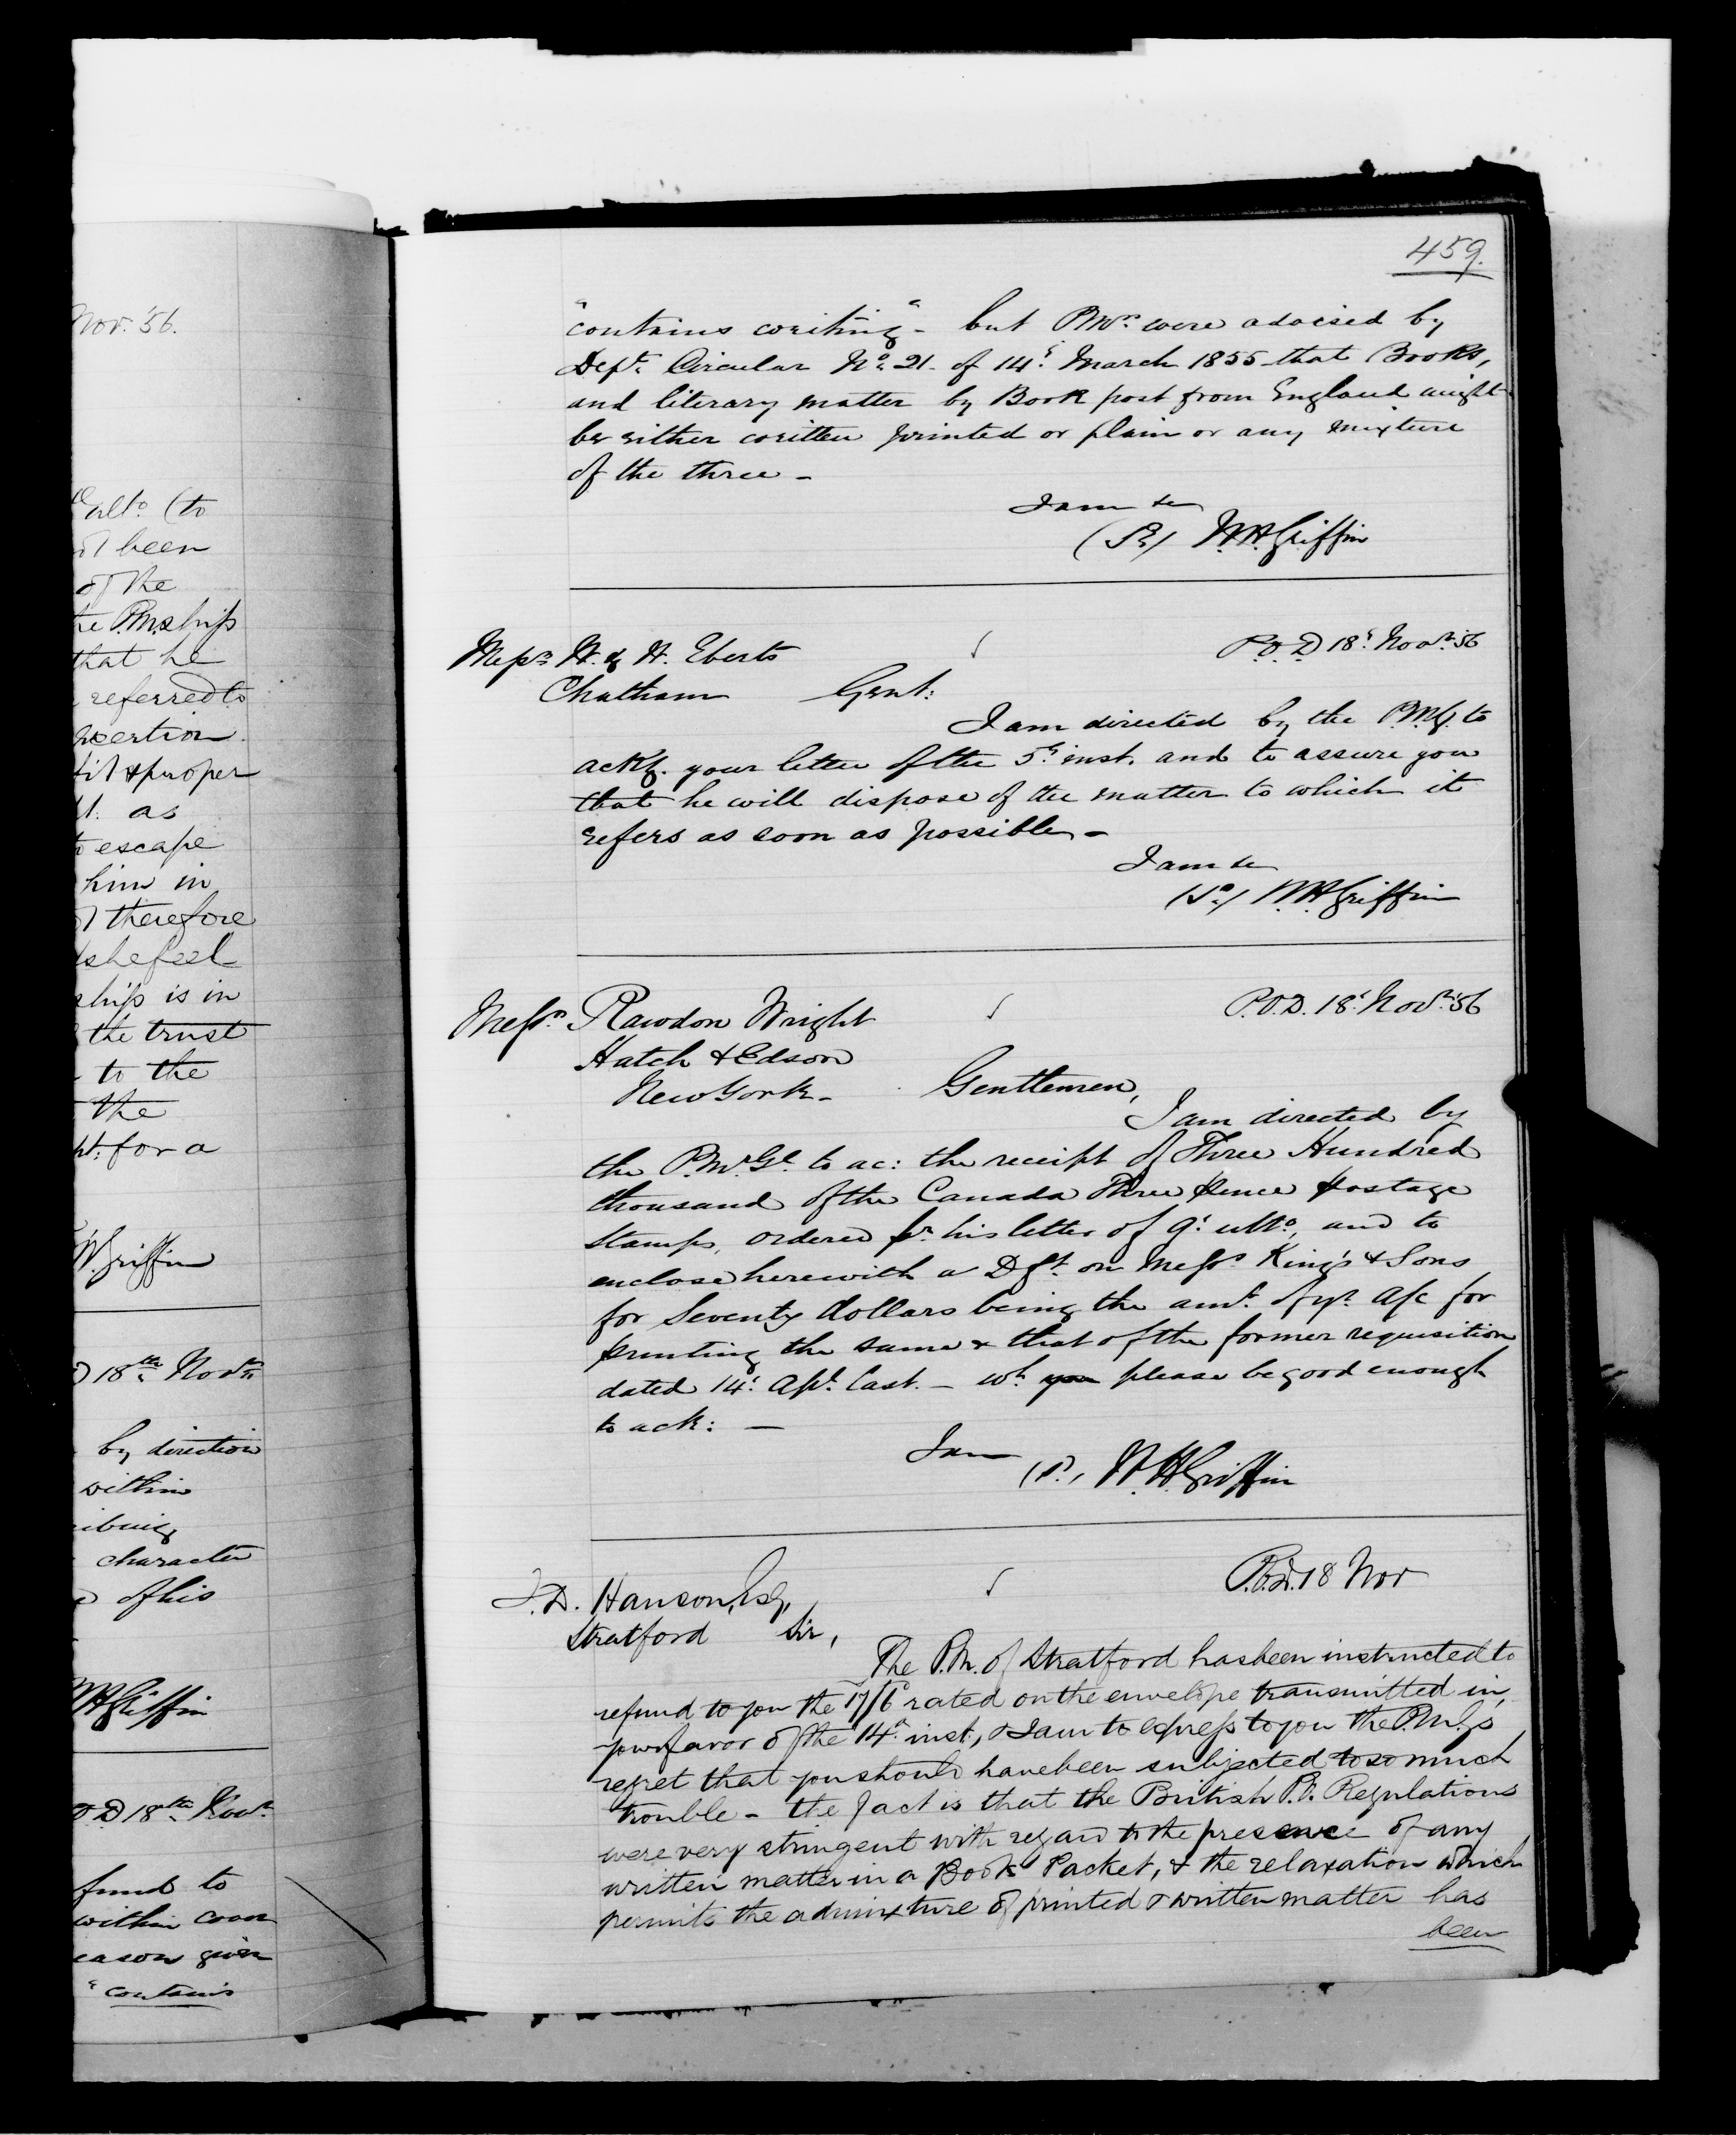 Nov. '56.
alto (to
been
of the
he P.M.ship
that he
referred to
nsertion.
fit & proper
as
to escape
him in
therefore
she feel
ship is in
the trust
to the
the
for a
W. Griffin
18th Novr.
by direction
within
character
of his
WH Griffin
18th Novr.
fund to
within cover
eason given
"contains
459.
"contains writing" - but P.Mrs. were advised by
Dept. Circular No. 21 - of 14th March 1855 that Books,
and literary matter by Book post from England might
be either written printed or plain or any mixture
of the three -
I am &c
(Sd.) W.H. Griffin
Messrs. W. & W. Eberts
P.O.D 18th Novr. 56
Chatham Gent:
I am directed by the P.M.G. to
ackg. your letter of the 5th inst. and to assure you
that he will dispose of the matter to which it
refers as soon as possible -
I am &c
(Sd.) W H Griffin
Messrs. Rawdon Wright
P.O.D. 18th Novr. '56
Hatch & Edson
New York - Gentlemen,
I am directed by
the P.Mr. Gl. to ac: the receipt of Three Hundred
thousand of the Canada Three pence postage
Stamps, ordered pr. his letter of 9th ulto., and to
enclose herewith a Dft. on Messrs. King's & Sons
for Seventy dollars being the amt. of yr. A/c for
printing the same & that of the former requisition
dated 14th Apl. last. - wh. you please be good enough
to ack: -
I am
(Sd.) W. H. Griffin
J.D. Hanson, Esq,
P.O.D. 18 Nov
Stratford Sir,
The P.M. of Stratford has been instructed to
refund to you the 17/6 rated on the envelope transmitted in
your favor of the 14th inst., & I am to express to you the P.M.G's
regret that you should have been subjected to so much
trouble - the fact is that the British P.O. Regulations
were very stringent with regard to the presence of any
written matter in a Book Packet, & the relaxation which
permits the admixture of printed & written matter has
been